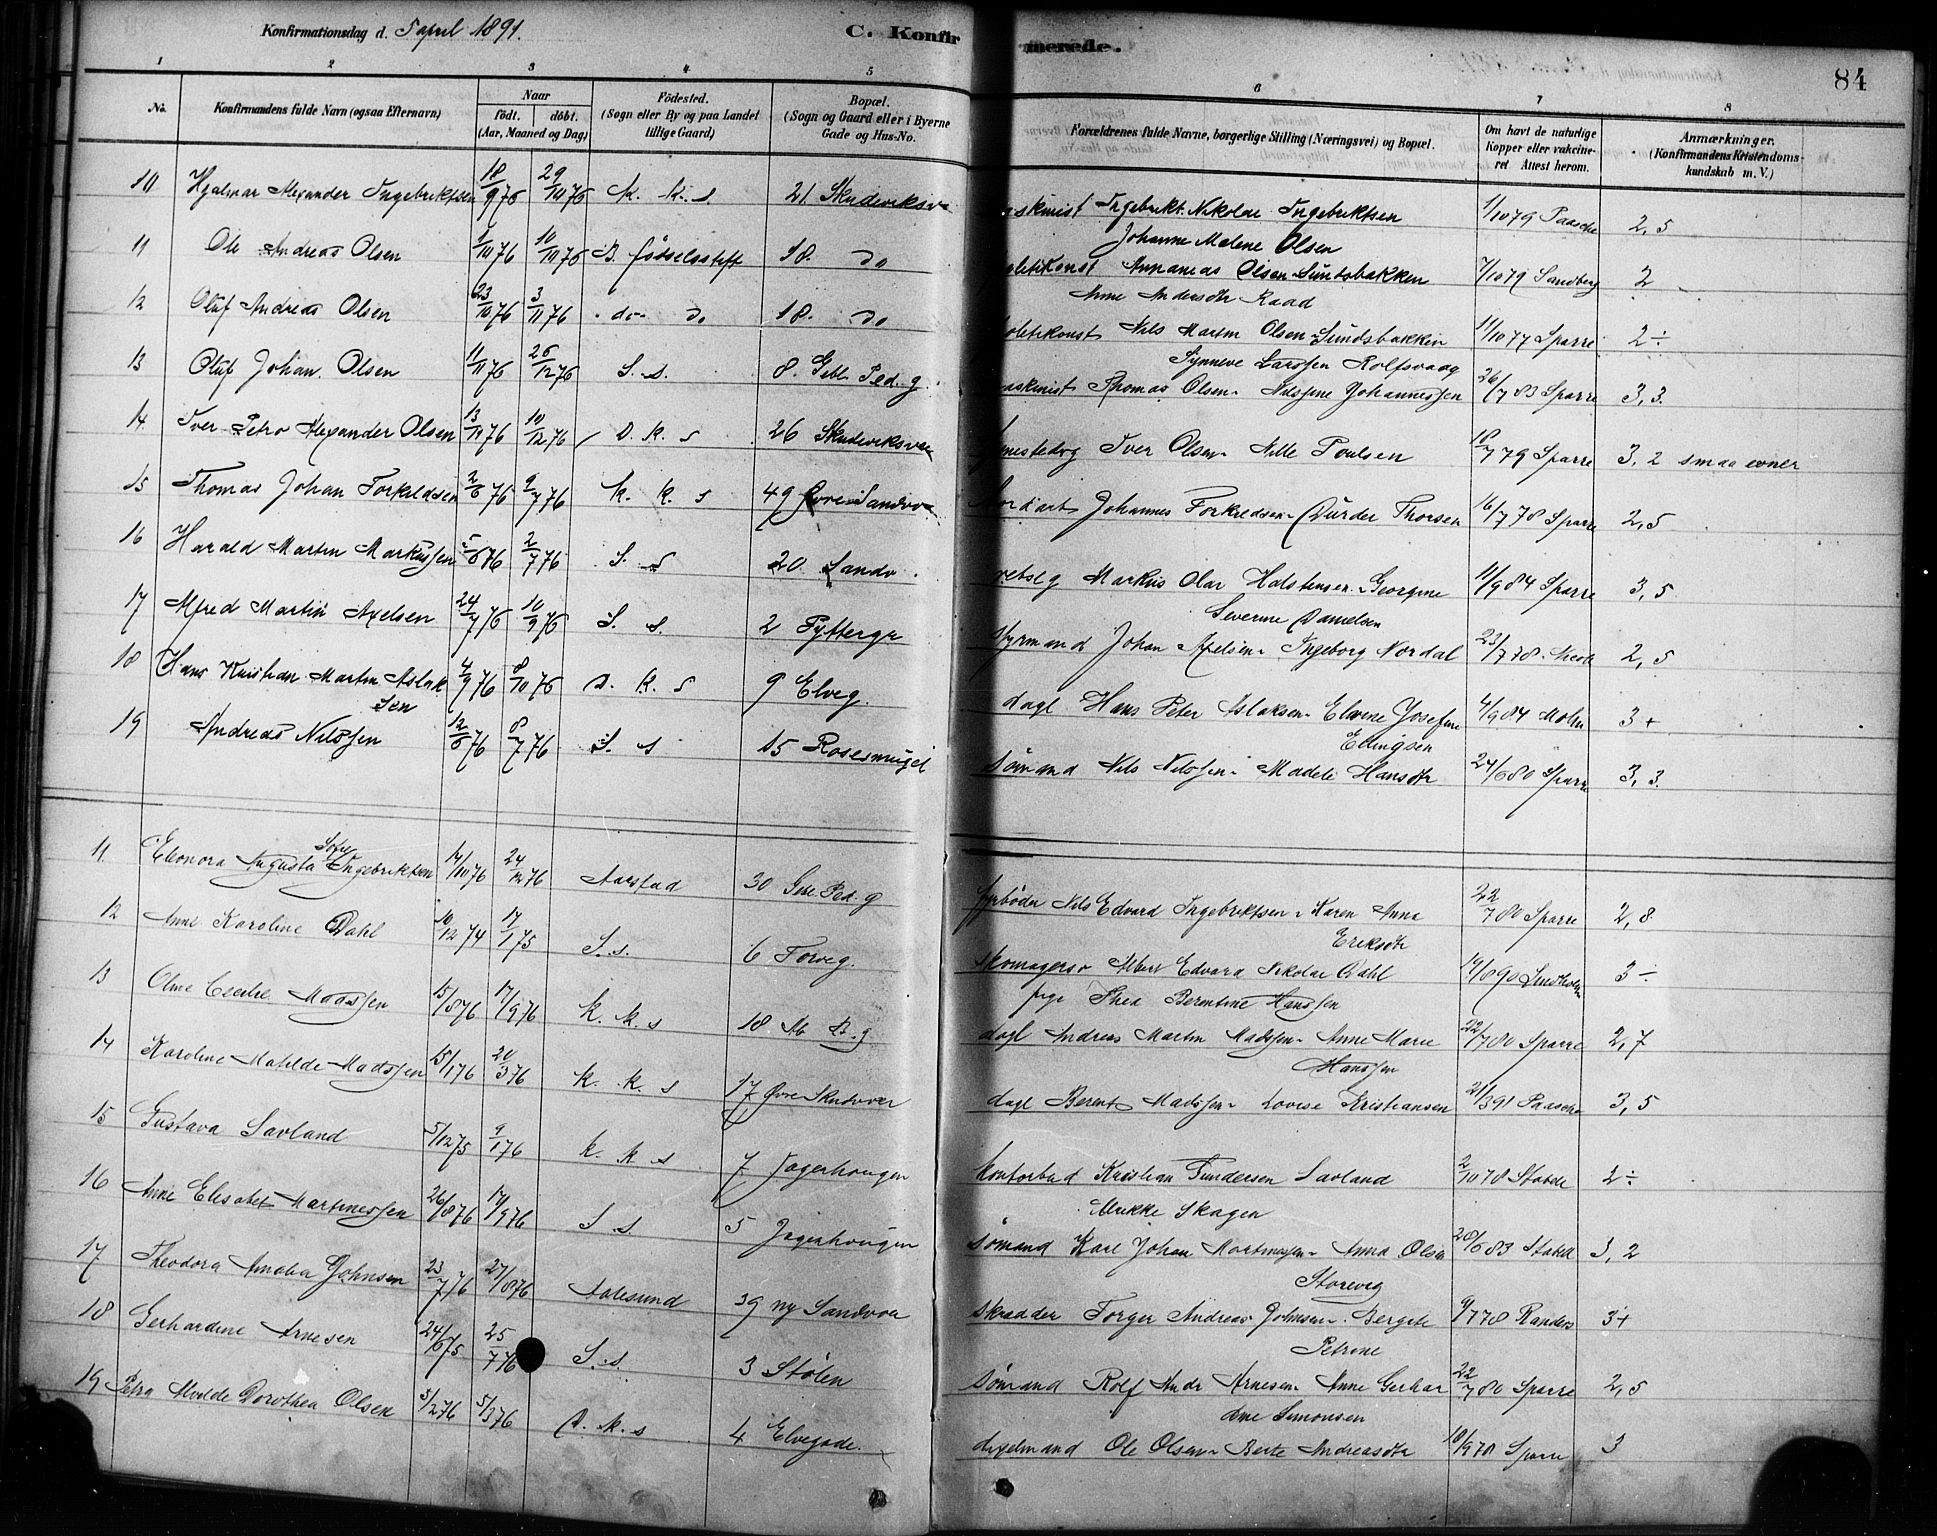 Konfirmationsdag d. 5 april 1891. C. Konfirmerede. 84
1 2 3 4 5 6 7 8
No. Konfirmandens fulde Navn (ogsaa Efternavn) Naar födt. döbt. (Aar, Maaned og Dag) Födested. (Sogn eller By og paa Landet tillige Gaard) Bopæl. (Sogn og Gaard eller i Byerne Gade og Hus-No. Forældrenes fulde Navne, borgerlige Stilling (Næringsvei) og Bopæl. Om havt de naturlige Kopper eller vakcineret Attest herom. Anmærkninger. (Konfirmandens Kristendomskundskab m. V.)
10 Hjalmar Alexander Ingebriktsen 18/9 76 29/10 76 K. K. s. 21 Skudeviksv Ingebrikt Nikolai Ingebriktsen 1/10 79 Paasche 2,5
Johanne Malene Olsen
11 Ole Andreas Olsen 1/10 76 10/10 76 födselsstift 18. do Annanias Olsen Sundsbakken 7/10 79 Sandberg 2
Anne Andersdtr Raad
12 Oluf Andreas Olsen 23/10 76 3/11 76 do do 18. do Nils Martin Olsen Sundsbakken 11/10 77 Sparre 2÷
Synneve Larssen Rolfsvaag
13 Oluf Johan Olsen 11/11 76 26/12 76 S. s. 8. Gebl. Ped. g. Thomas Olsen Nilsine Johannessen 26/7 83 Sparre 3,3.
14 Iver Petro Alexander Olsen 13/11 76 10/12 76 D. K. s 26 Skudeviksvei Iver Olsen Nille Poulsen 18/7 79 Sparre 3,2 smaa evner
15 Thomas Johan Torkildsen 2/6 76 9/7 76 K. K. s 49 Øvre Sandv Johannes Torkildsen Durder Thorsen 16/7 78 Sparre 2,5
16 Harald Martin Markussen 5/6 76 2/7 76 S. s 20 Sandv. Markus Olai Halstensen Georgine 11/9 84 Sparre 3,5
Severine Danielsen
17 Alfred Martin Axelsen 24/7 76 10/9 76 S. s. 2 Pyttergr styrmand Johan Axelsen Ingeborg Nordal 23/7 78 2,5
18 Hans Kristian Martin Aslaksen 4/9 76 8/10 76 D. K. s 9 Elveg. dagl Hans Peter Aslaksen Elevine Josefine 4/9 84 Mohn 3+
Ellingsen
19 Andreas Nilssen 12/6 76 8/7 76 S. s 15 Rosesmuget sömand Nils Nilssen Madele Hansdtr 24/6 80 Sparre 3,3.
11 Eleonora Augusta Sofie Ingebriktsen 14/10 76 24/12 76 Aarstad 30 Gebl. Ped. g fyrböder Nils Edvard Ingebriktsen Karen Anna 22/7 80 Sparre 2,8
Eriksdtr
12 Anne Karoline Dahl 10/12 74 17/1 75 S. s. 6 Torveg. skomagersv Albert Edvard Nikolai Dahl 19/8 90 Lindholm 3÷
pige Thea Berentine Hanssen
13 Oline Cecilie Madssen 15/8 76 17/9 76 K. K. s 18 dagl Andreas Martin Madssen Anne Marie 22/7 80 Sparre 2,7
Hanssen
14 Karoline Matilde Madssen 15/1 76 20/3 76 K. K. s 17 Øvre Skudevei dagl Berent Madssen Lovise Kristiansen 21/3 91 Paasche 3,5
15 Gustava Savland 5/12 75 9/1 76 K. K. s 7 Jægerhaugen kontorbud Kristian Gundersen Savland 2/10 78 Stabell 2÷
Ulrikke Skagen
16 Anne Elisabet Martinessen 26/8 76 17/9 76 S. s. 5 Jægerhaugen sömand Karl Johan Martinessen Anna Olsen 20/6 83 Stabell 3,2
Storeveg
17 Theodora Amalia Johnsen 23/7 76 27/8 76 Aalesund 39 ny Sandvei skrædder Torger Andreas Johnsen Bergete 9/7 78 Randers 3+
Petrine
18 Gerhardine Arnesen 24/6 75 25/7 76 S. s. 3 Stölen sömand Rolf Andr Arnesen Anne Gerhardine 22/7 80 Sparre 2,5
Simonsen
19 Petra Alvilde Dorothea Olsen 3/2 76 5/3 76 D. K. s 4 Elvegade. Ole Olsen Berte Andreasdtr 18/9 78 Sparre 3